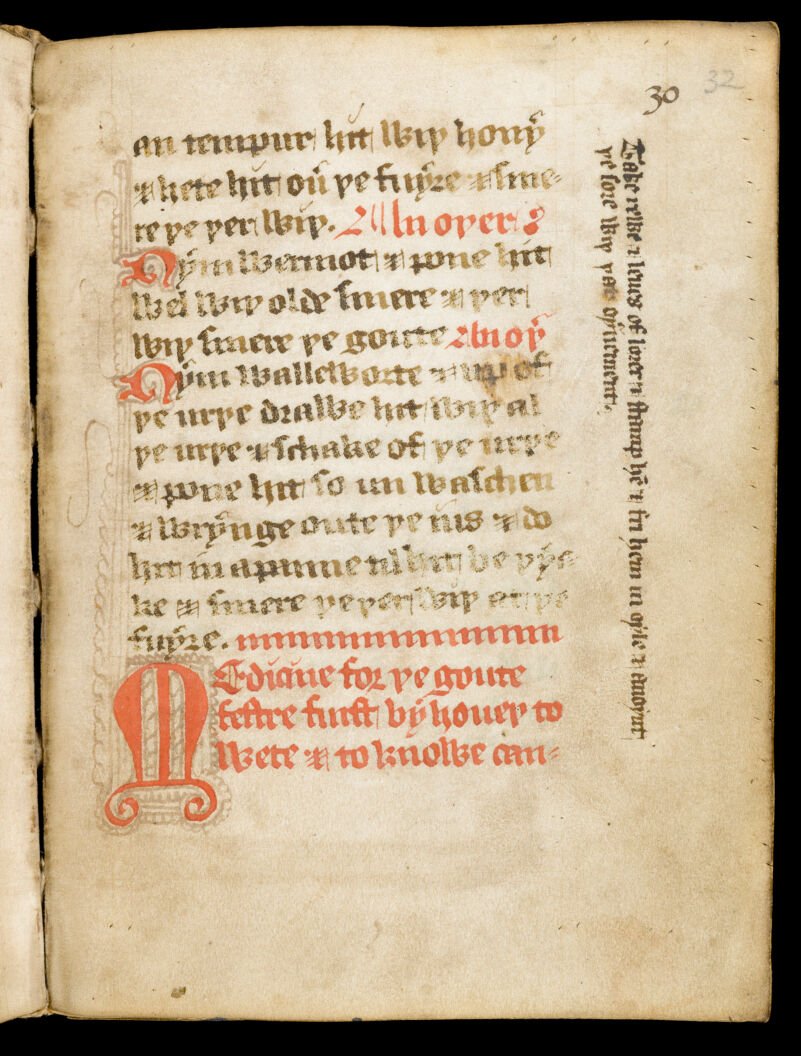 30
32
an tempur hit wiþ honẏ
⁊ hete hit ou̅ þe fuẏre ⁊ sme-
re þe þer wiþ. Anoþer
Nẏm wermot ⁊ pone hit
wel wiþ olde smere ⁊ þer
wiþ smere þe goute Anoþ
Nẏm wallewortte ⁊ up of
þe urþe drawe hit wiþ al
þe urþe ⁊ schake of þe urþe
⁊ pone hit so un waschen
⁊ wrẏnge oute þe ius ⁊ do
hit in a panne til hit be þẏc
ke ⁊ smere þe þer wiþ at þe
fuẏre.
Medicine for þe goute
festre furst bẏ houeþ to
wete ⁊ to knowe can-
Take rewe ⁊ leues of lorer ⁊ stamp hē ⁊ fri hem in oẏle ⁊ anoynt
þe sore wiþ þat oẏnement.